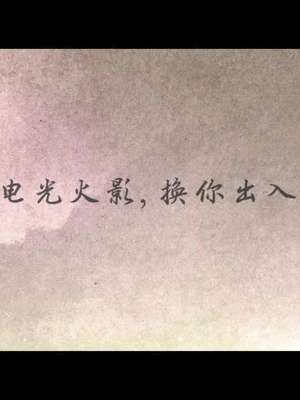 电光火影,换你出入